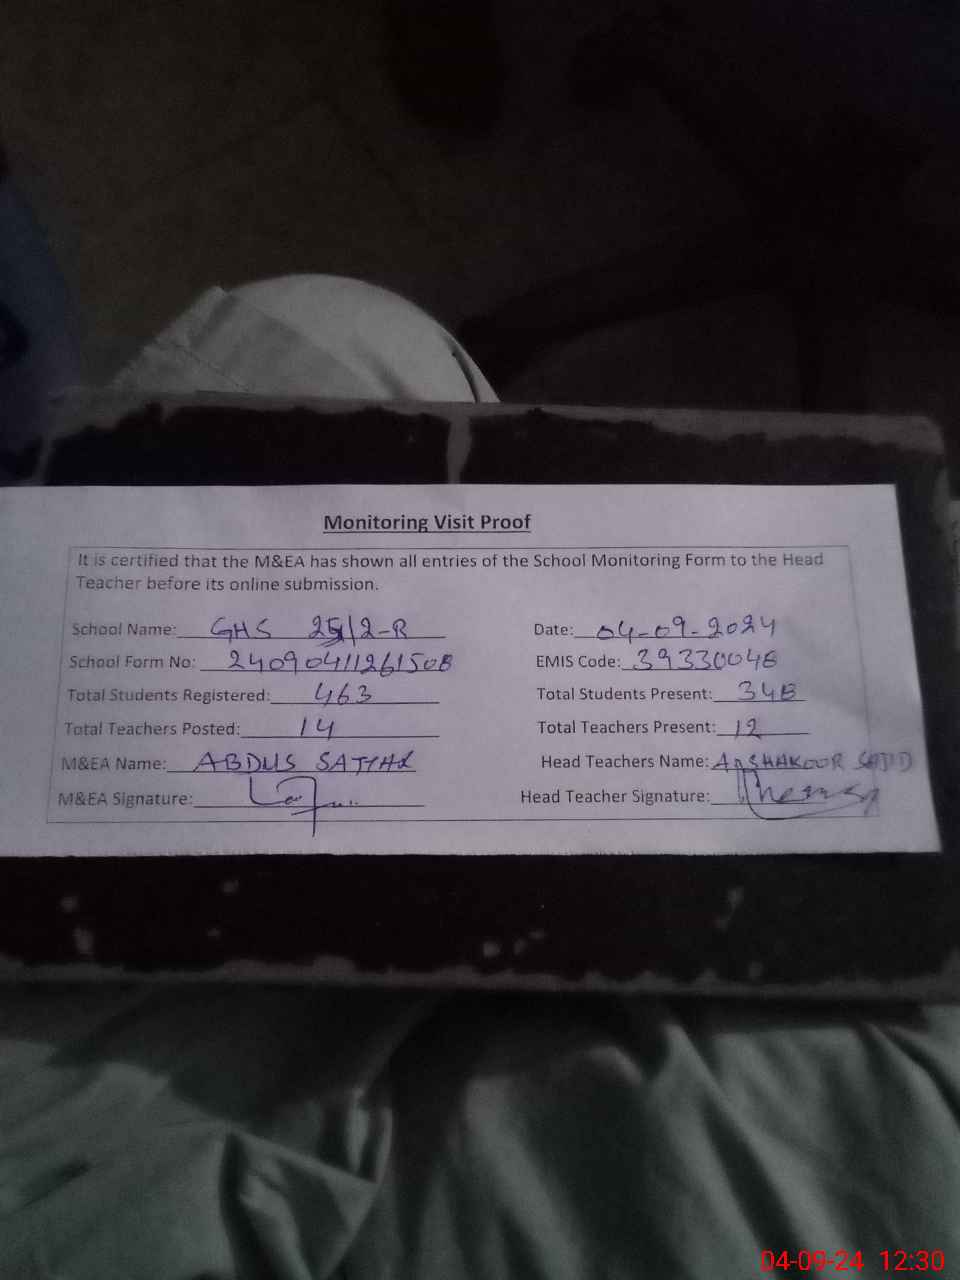 Monitoring Visit Proof
It is certified that the M&EA has shown all entries of the School Monitoring Form to the Head
Teacher before its online submission.
School Name: GHS 25/2-R Date: 04-09-2024
School Form No: 24090411261508 EMIS Code: 39330048
Total Students Registered: 463 Total Students Present: 348
Total Teachers Posted: 14 Total Teachers Present: 12
M&EA Name: ABDUS SATTAR Head Teachers Name: SHAKOOR SAJID
M&EA Signature: Head Teacher Signature:
04-09-24 12:30